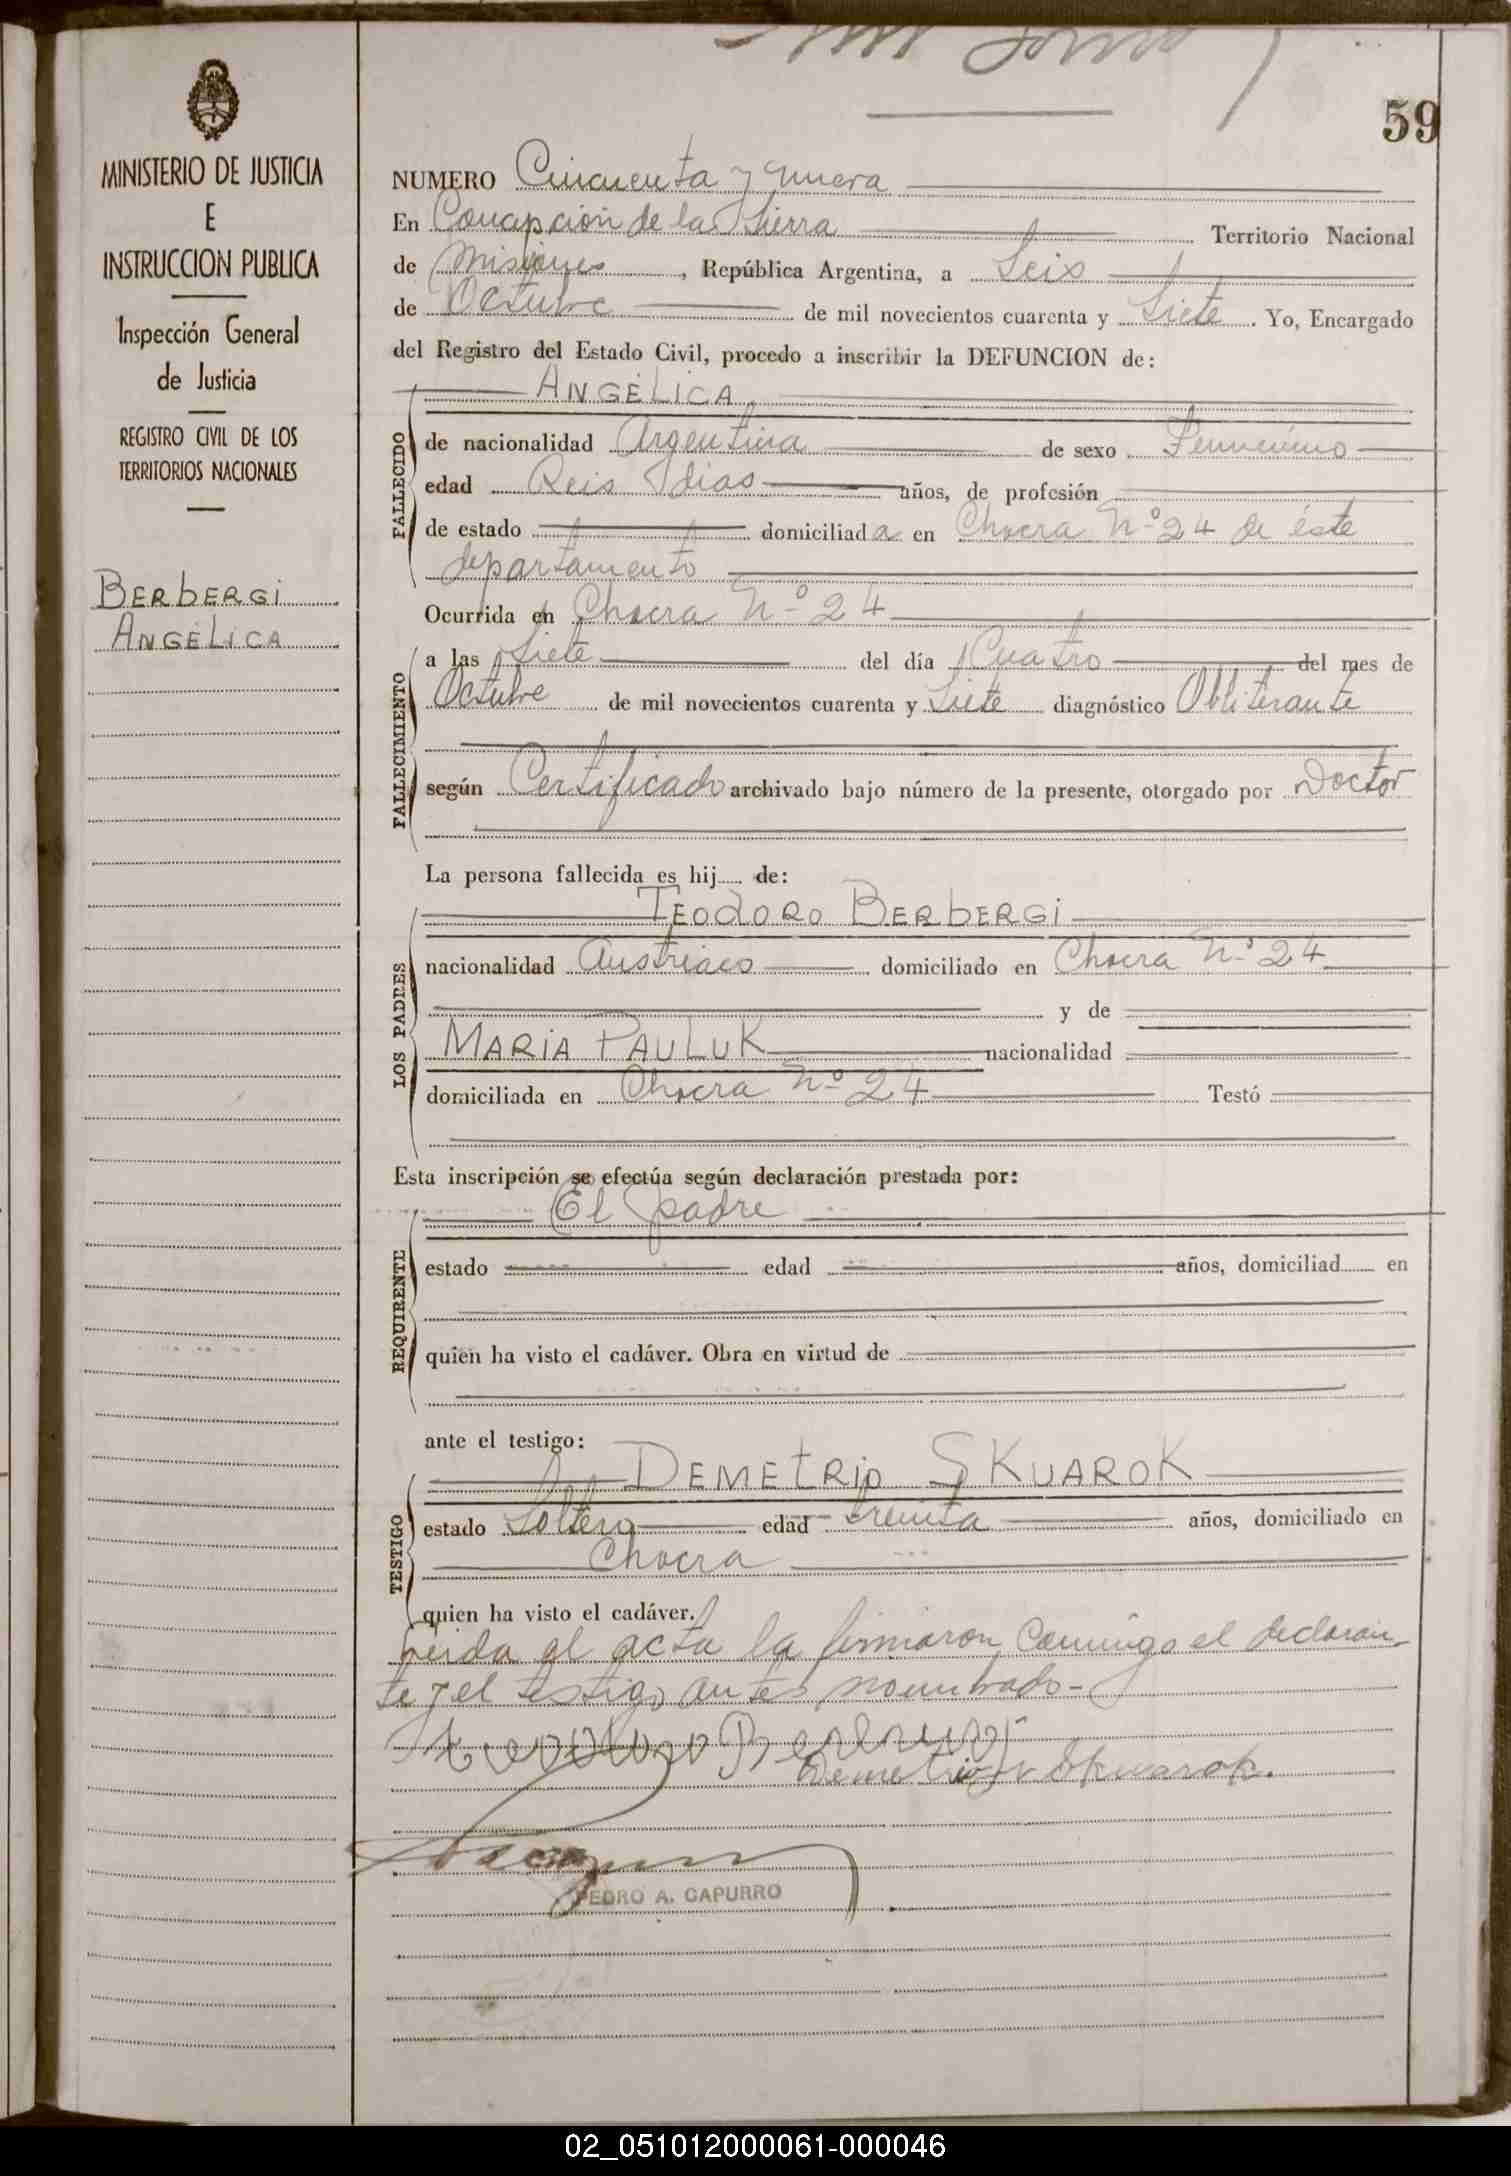 59
MINISTERIO DE JUSTICIA
E
INSTRUCCION PUBLICA
Inspección General
de Justicia
REGISTRO CIVIL DE LOS
TERRITORIOS NACIONALES
BERBERGI
ANGÉLICA
NUMERO Cincuenta y nueva
En Concepción de la Sierra Territorio Nacional
de Misiones, República Argentina, a Seis
de Octubre de mil novecientos cuarenta y Siete. Yo, Encargado
del Registro del Estado Civil, procedo a inscribir la DEFUNCION de:
ANGÉLICA
FALLECIDO
de nacionalidad Argentina de sexo Femenino
edad Seis Dias años, de profesión
de estado domiciliada en Chacra Nº 24 de éste
departamento
Ocurrida en Chacra Nº 24
FALLECIMIENTO
a las Siete del día Cuatro del mes de
Octubre de mil novecientos cuarenta y Siete diagnóstico Obliterante
según Certificado archivado bajo número de la presente, otorgado por Doctor
La persona fallecida es hij de:
LOS PADRES
TEODORO BERBERGI
nacionalidad Austriaco domiciliado en Chacra Nº 24
y de
MARIA PAULUK nacionalidad
domiciliada en Chacra Nº 24 Testó
Esta inscripción se efectúa según declaración prestada por:
El padre
REQUIRENTE
estado edad años, domiciliad en
quien ha visto el cadáver. Obra en virtud de
ante el testigo:
DEMETRIO SKUAROK
TESTIGO
estado Soltero edad treinta años, domiciliado en
Chacra
quien ha visto el cadáver.
Leida el acta la firmaron conmigo el declaran-
te y el testigo antes nombrado-
Demetrio Skuarok.
PEDRO A. CAPURRO
02_051012000061-000046